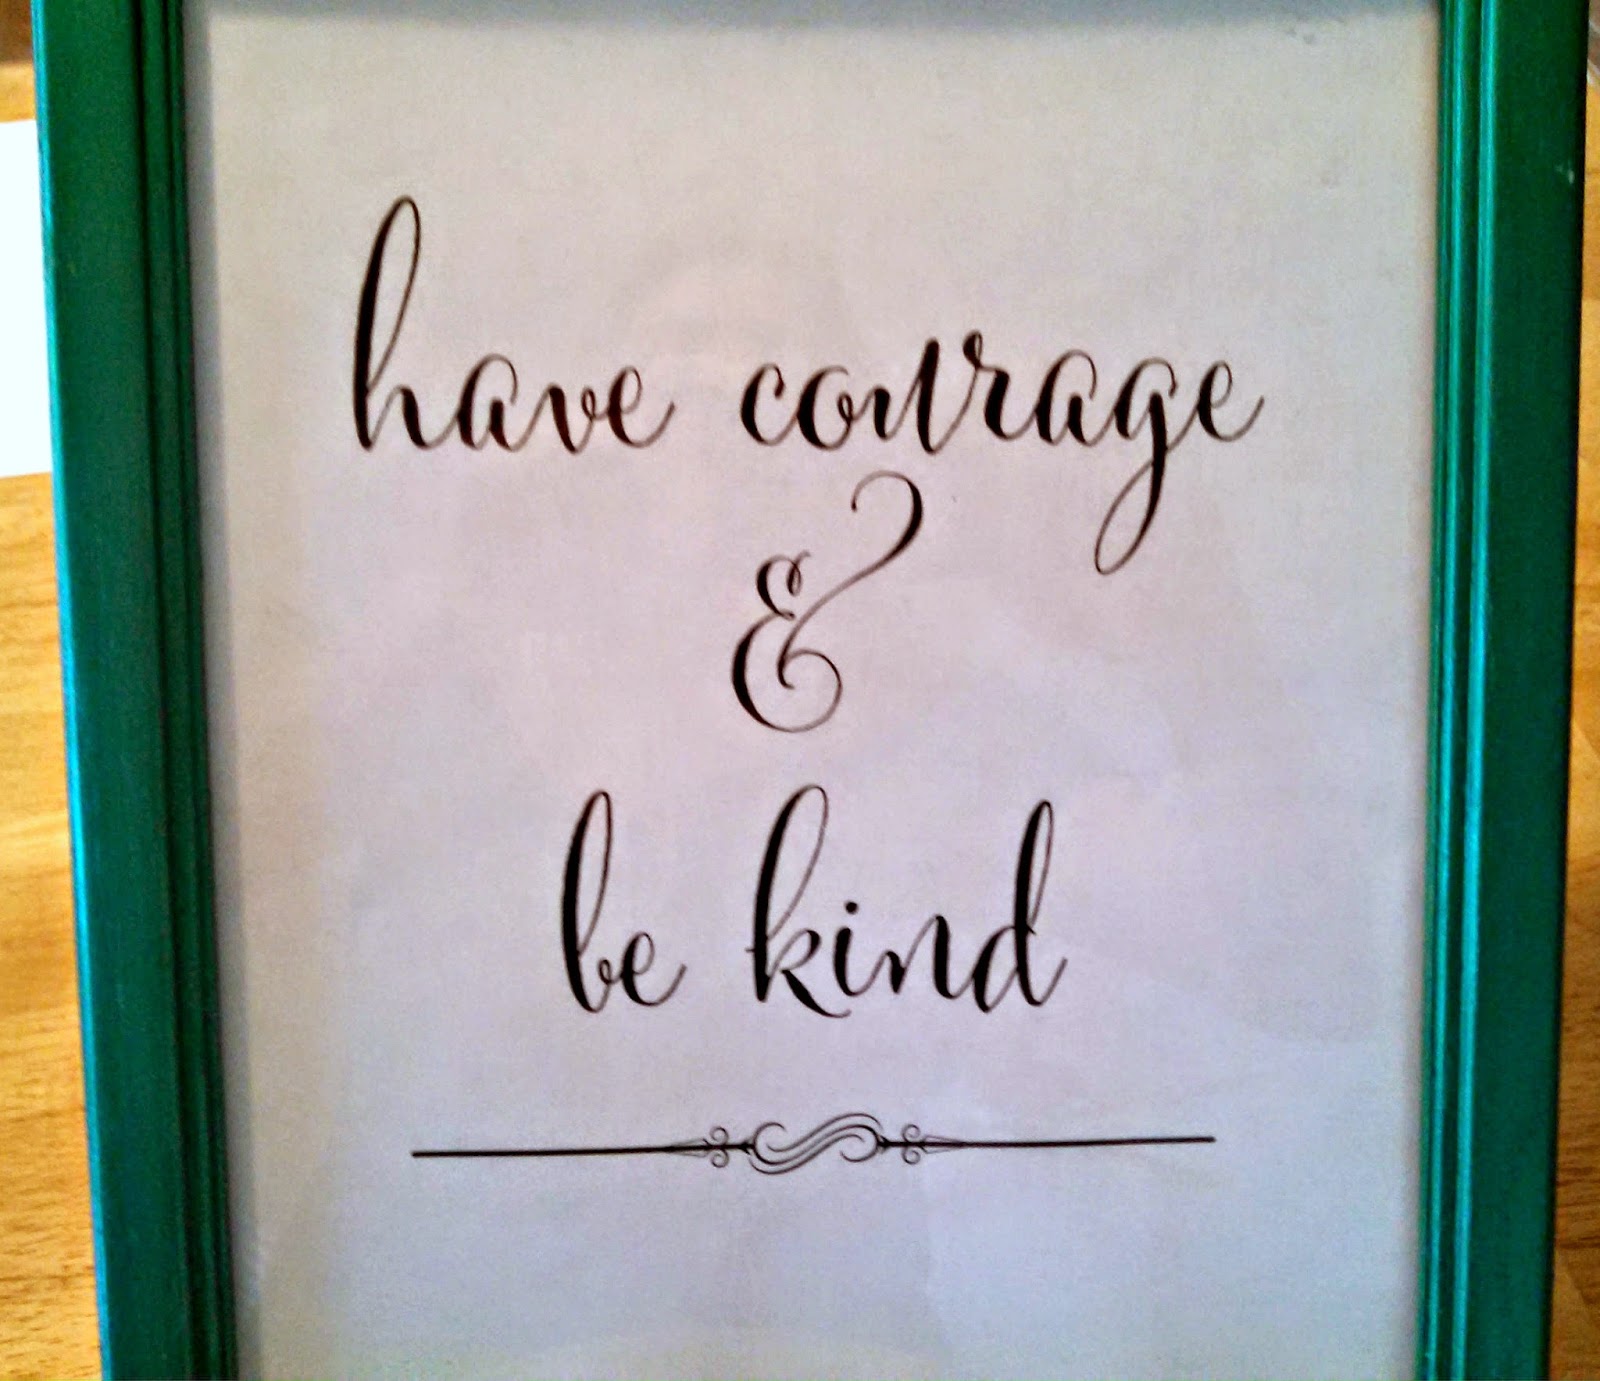 have courage
&
be kind